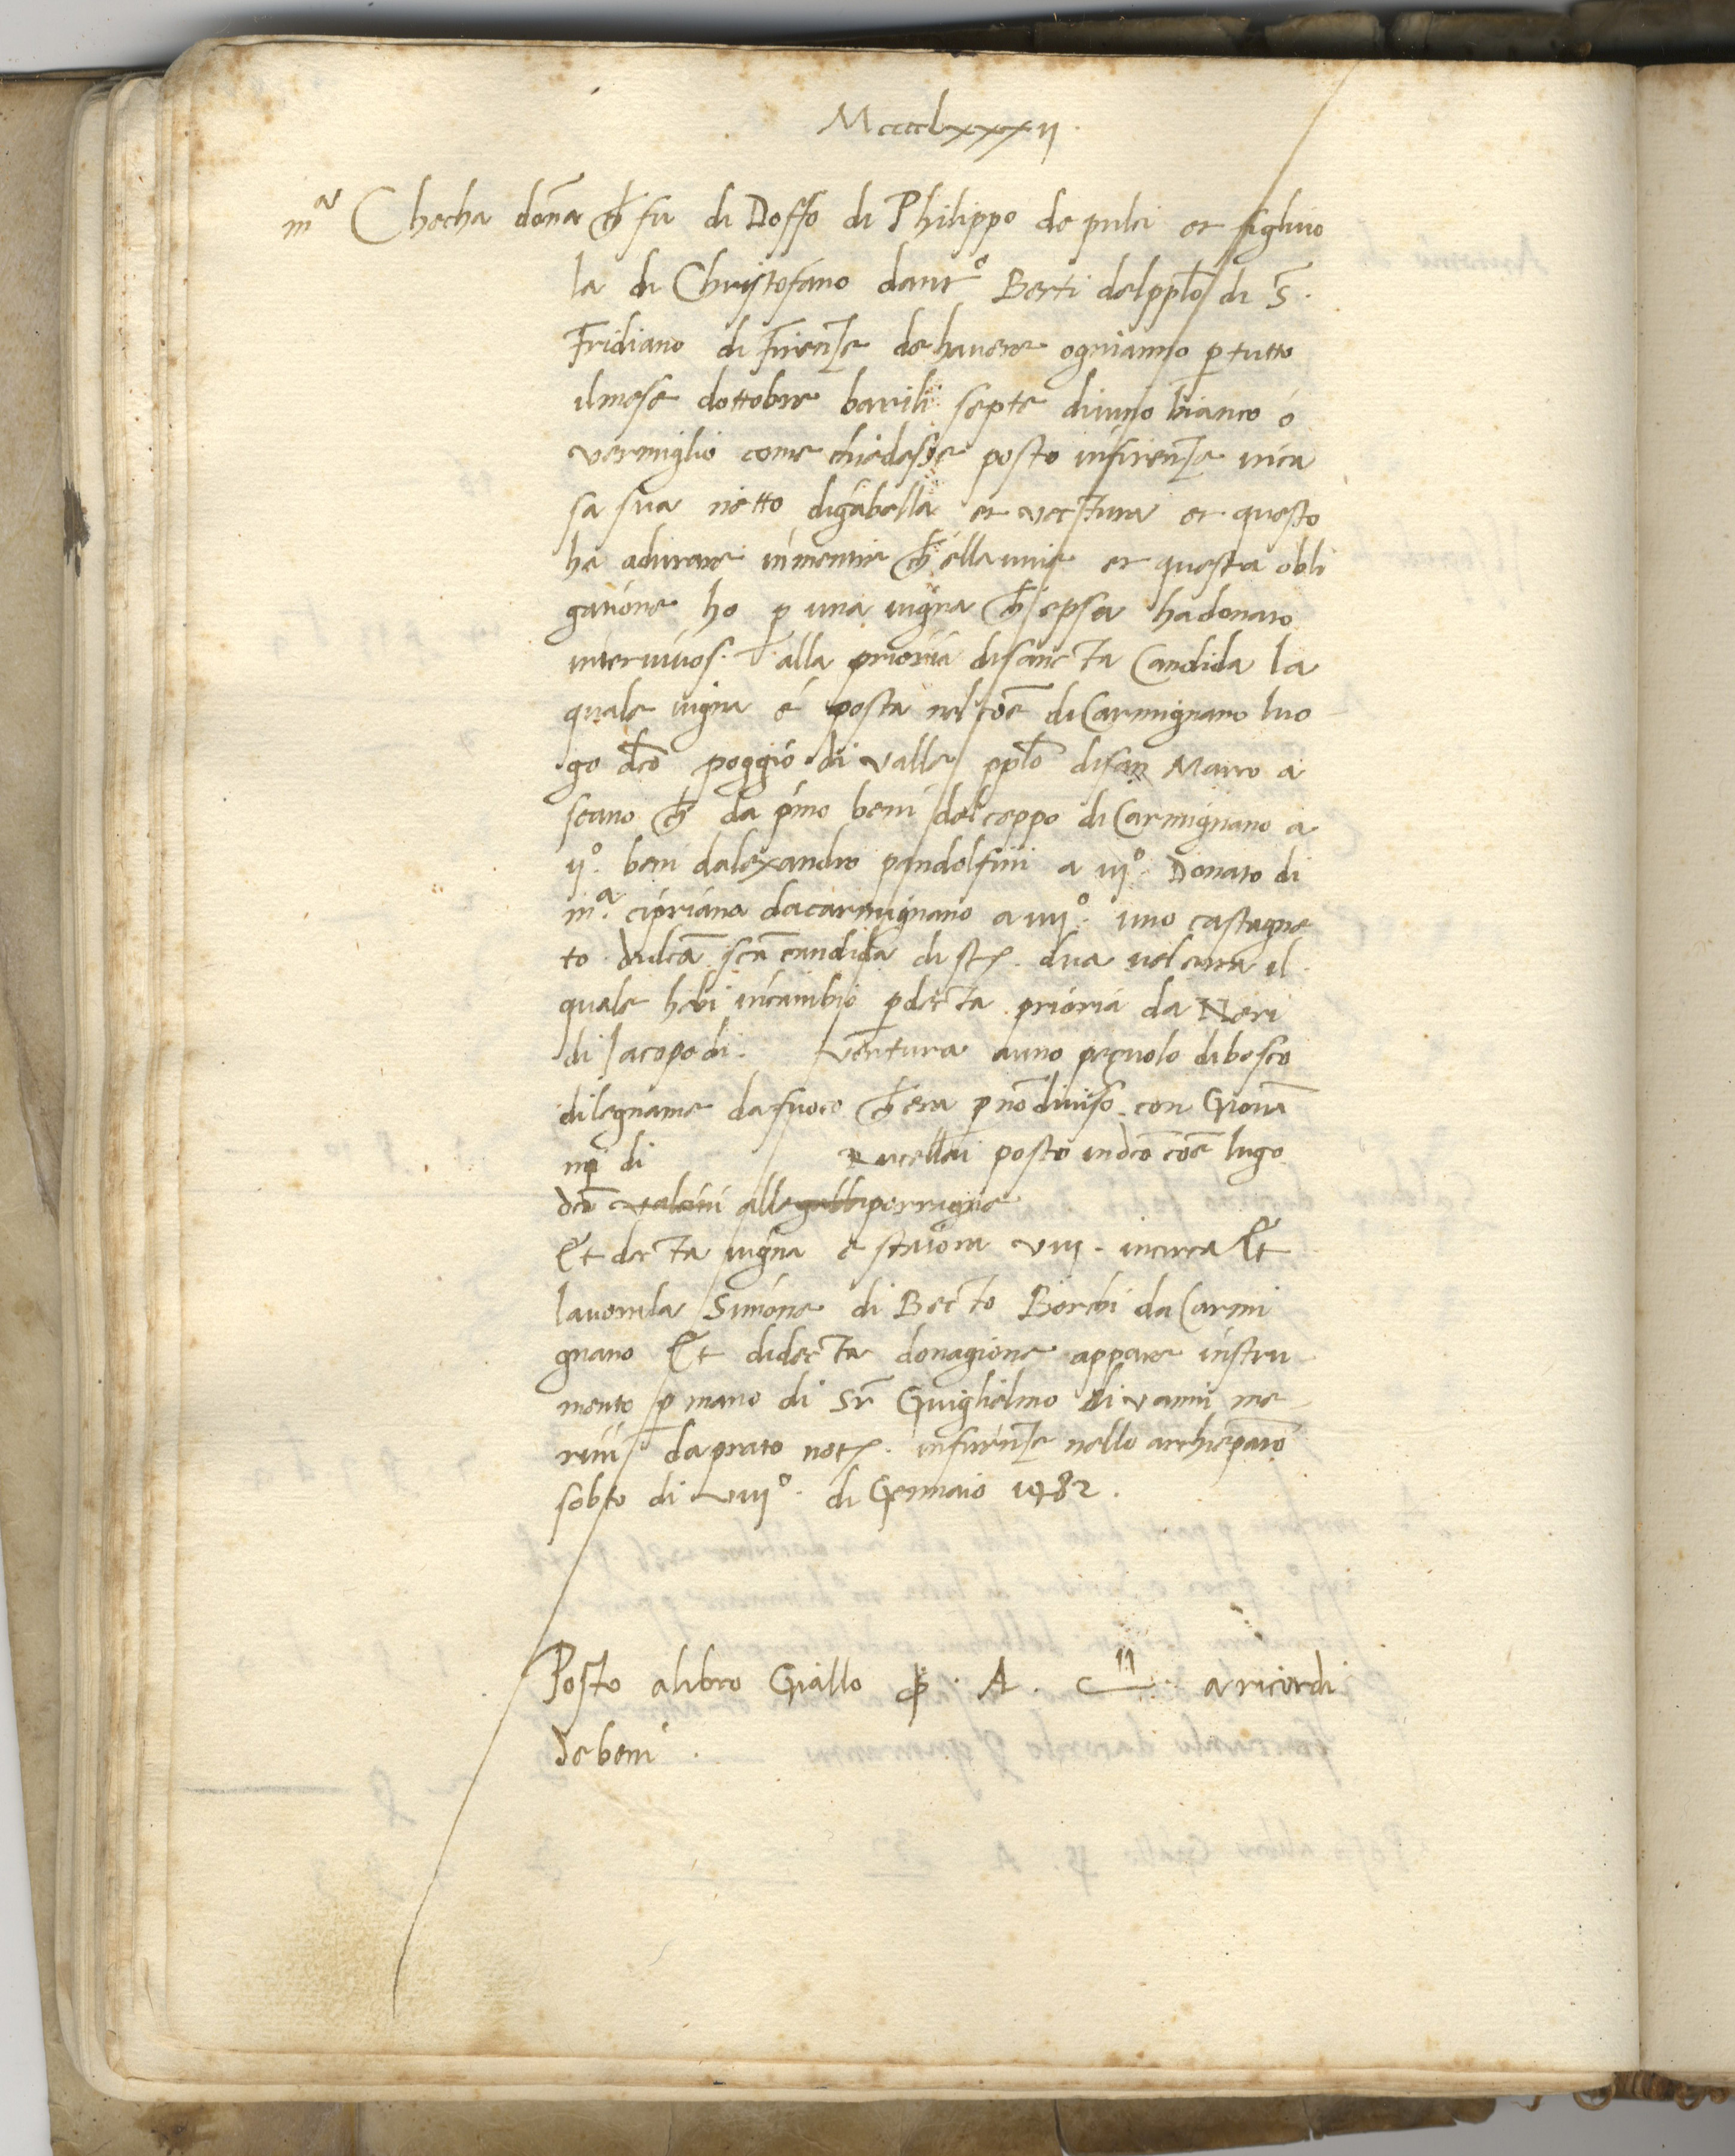 Mcccclxxxij.
mª Checha dona ch̄ fu di Doffo di Philippo de pulci et figliuo
la di Christofano dantº Berti del pplo di S.
Fridiano di Firenze de havere ognianno p tutto
il mese dottobre barili septe di vino bianco o
vermiglio come chiedesse posto infirenze inca
sa sua netto digabella et vectura et questo
ha adurare inmentre ch̄ ella vive et questa obli
gatione ho p una vigna ch̄ epsa ha donato
intervivos. alla prioria di sancta Candida la
quale vigna é posta nel coē di Carmignano luo
go dc̄o poggio di valle pplo di san Marco a
seano ch̄ da pimo beni del ceppo di Carmignano a
ijº. beni dalexandro pandolfini a iijº. Donato di
mª. cipriano dacarmignano a iiijº. uno castagne
to di dcā scā candida di st. dua vel circa il
quale hebi incambio p decta prioria da Neri
di Iacopo di ventura a uno pezuolo di bosco
di legname da fuoco ch̄ era p nō diviso con Giovā
nj di Rucellai posto in dc̄o coē lugo
dc̄o valoni alle galli perrugie
Et decta vigna e staiora viij. incirca Et
lavorala Simone di Becto Borchi da Carmi
gnano Et didecta donagione appare instru
mento p mano di Sr Guiglielmo di vanni me
rini da prato not. infirenze nello archiepato
sobto di viijº. di Gennaio 1482.
Posto alibro Giallo A. c 11 a ricordi
de beni.